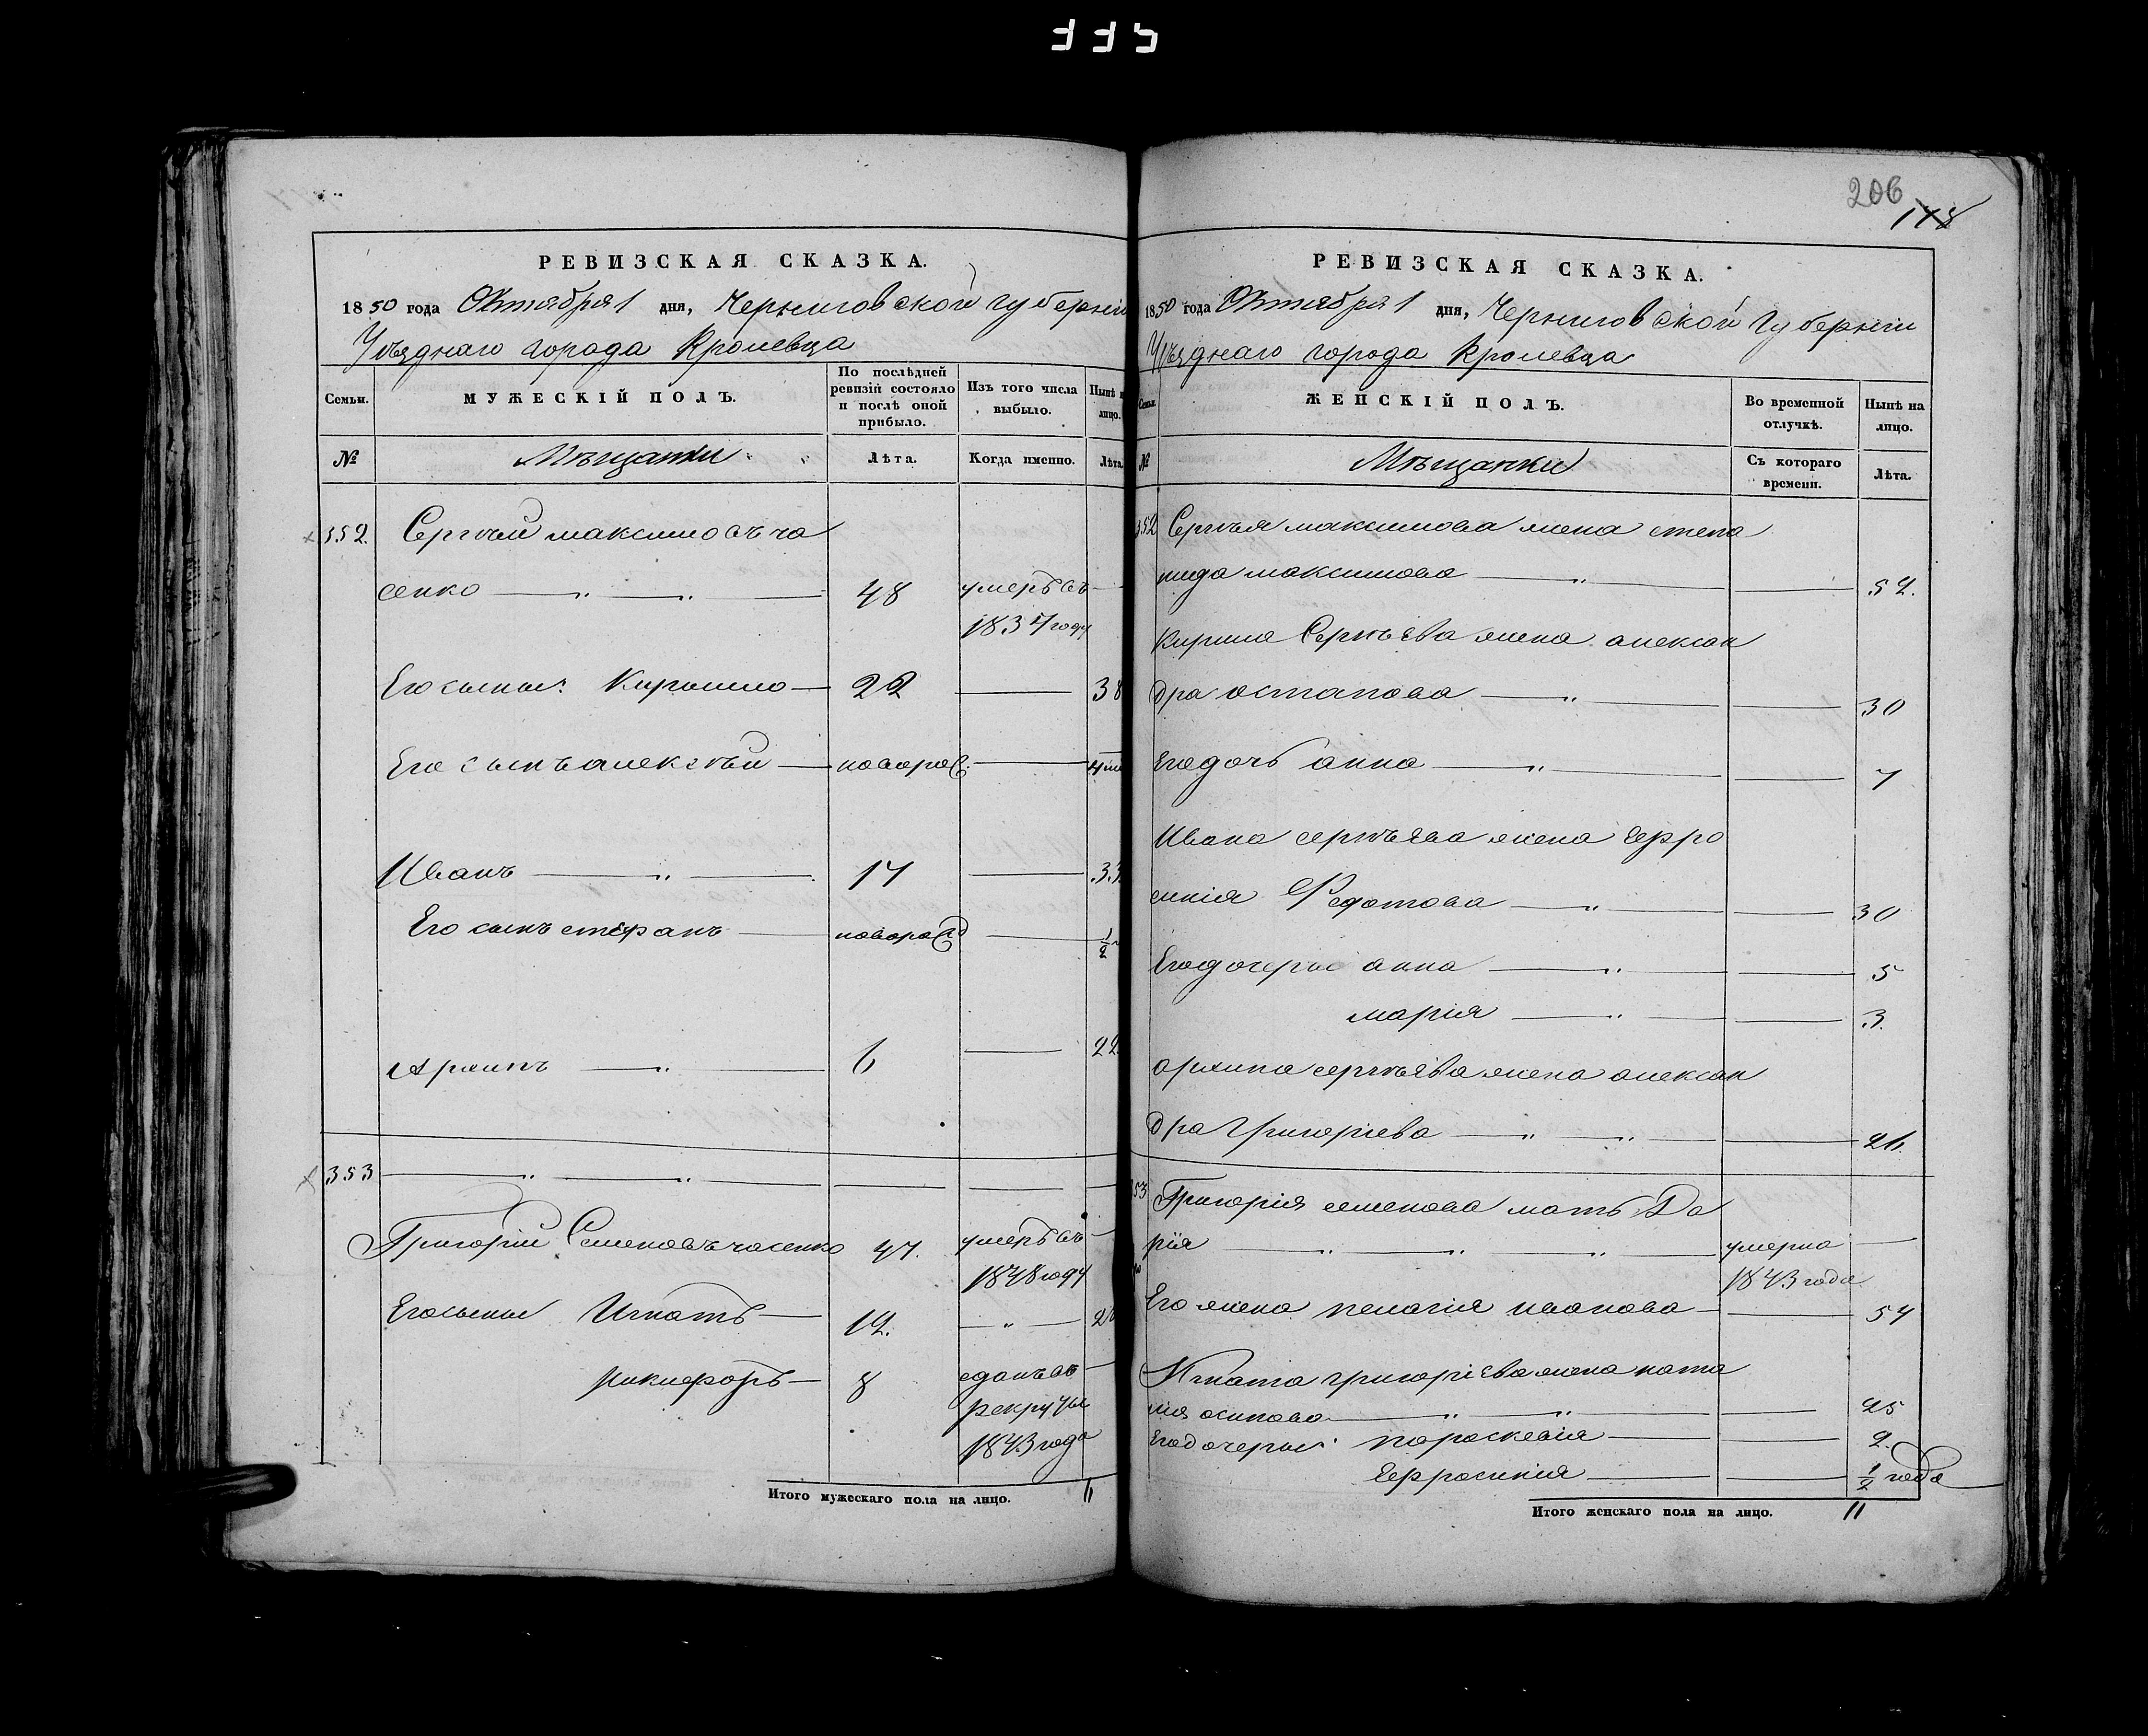 335
РЕВИЗСКАЯ СКАЗКА.
1850 года Октября 1 дня, Черниговской губерніи
Уѣзднаго города Кролевца
Семьи.
МУЖЕСКІЙ ПОЛЪ.
По послѣдней ревизіи состояло и послѣ оной прибыло.
Изъ того числа выбыло.
Нынѣ на лицо.
№
Мѣщанки
Лѣта.
Когда именно.
Лѣта
352. Сергѣй максимовъ ча
сенко 48 умеръ въ
1837 году
Его сыны: Кирилло 22 38
Его сынъ алексѣй новорож.
Иванъ 17 33
Его сынъ стефанъ новорожд 1/2
Архипъ 6 22
353
Григорій Семеновъ часенко 47. умеръ въ
1848 году
Его сыны Игнатъ 12. 28
Никифоръ 8 сданъ въ
рекруты
1843 года
Итого мужескаго пола на лицо. 6
206
118
РЕВИЗСКАЯ СКАЗКА.
1850 года Октября 1 дня, Черниговской Губерніи
Уѣзднаго города Кролевца
Семьи.
ЖЕНСКІЙ ПОЛЪ.
Во временной отлучкѣ.
Нынѣ на лицо.
№
Мѣщанки
Съ котораго времени.
Лѣта.
352 Сергѣя максимова жена степа
нида максимова 52.
Кирила Сергѣева жена алексан
дра остапова 30
Его дочь анна 7
Ивана сергѣева жена Ефро
синія Федотова 30
Его дочеры анна 5
марія 3.
архипа сергѣева жена алексан
дра григоріева 21.
353 Григорія семенова мать Да
рія умерла
1843 года
Его жена пелагія иванова 54
Игната григоріева жена ната
лія осипова 25
Его дочеры: параскевія 2.
Ефросинія 1/2 года
Итого женскаго пола на лицо. 11